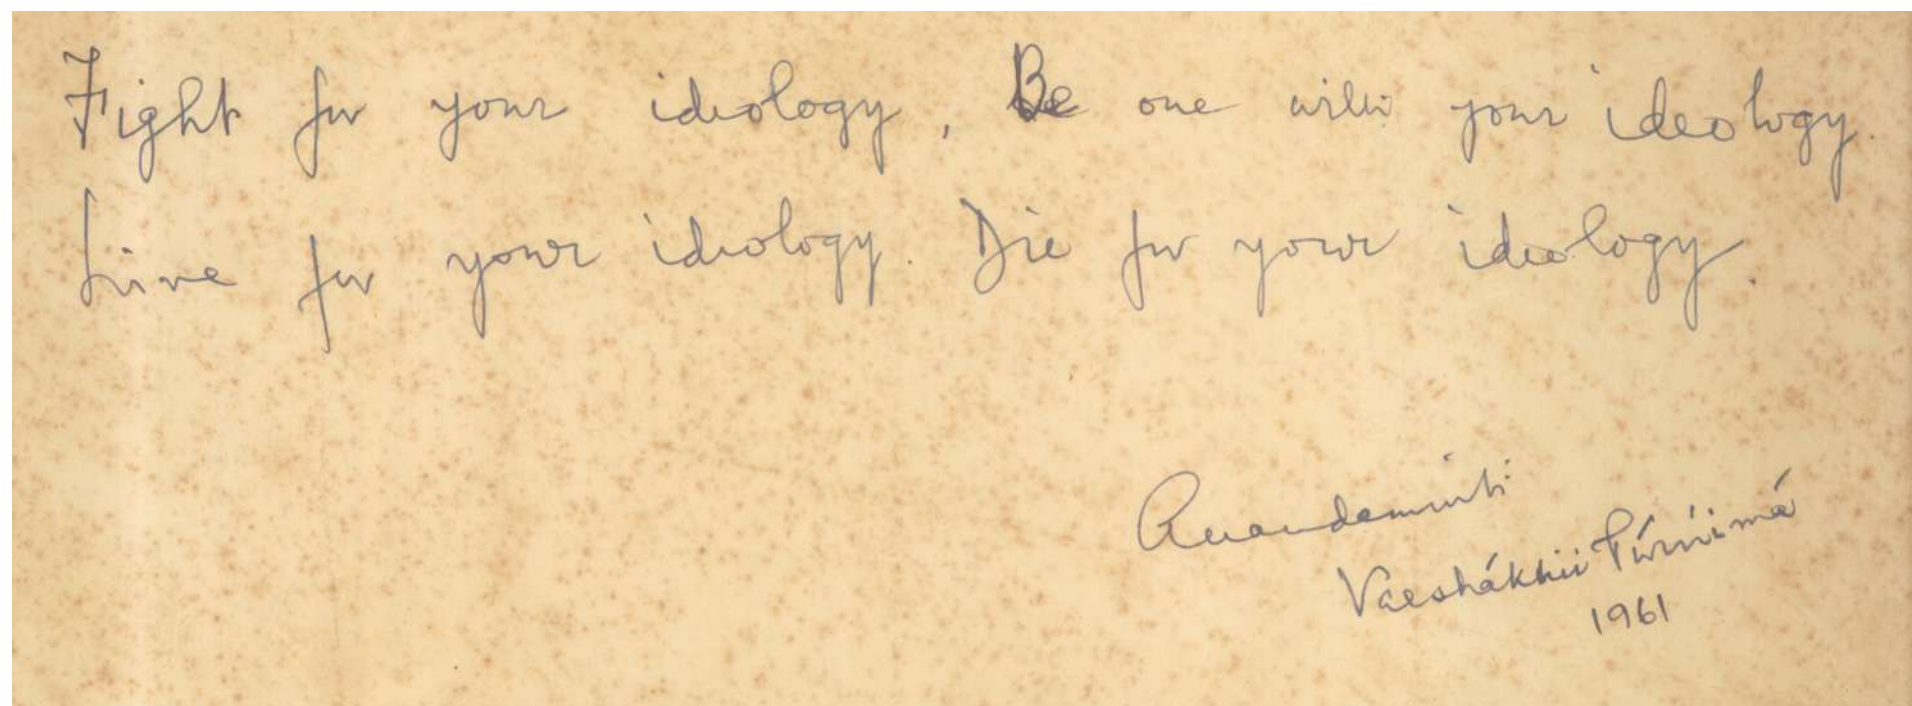 Fight for your ideology, Be one with your ideology.
Live for your ideology. Die for your ideology.
Anandamurti
Vaeshákhii Púrńimá
1961